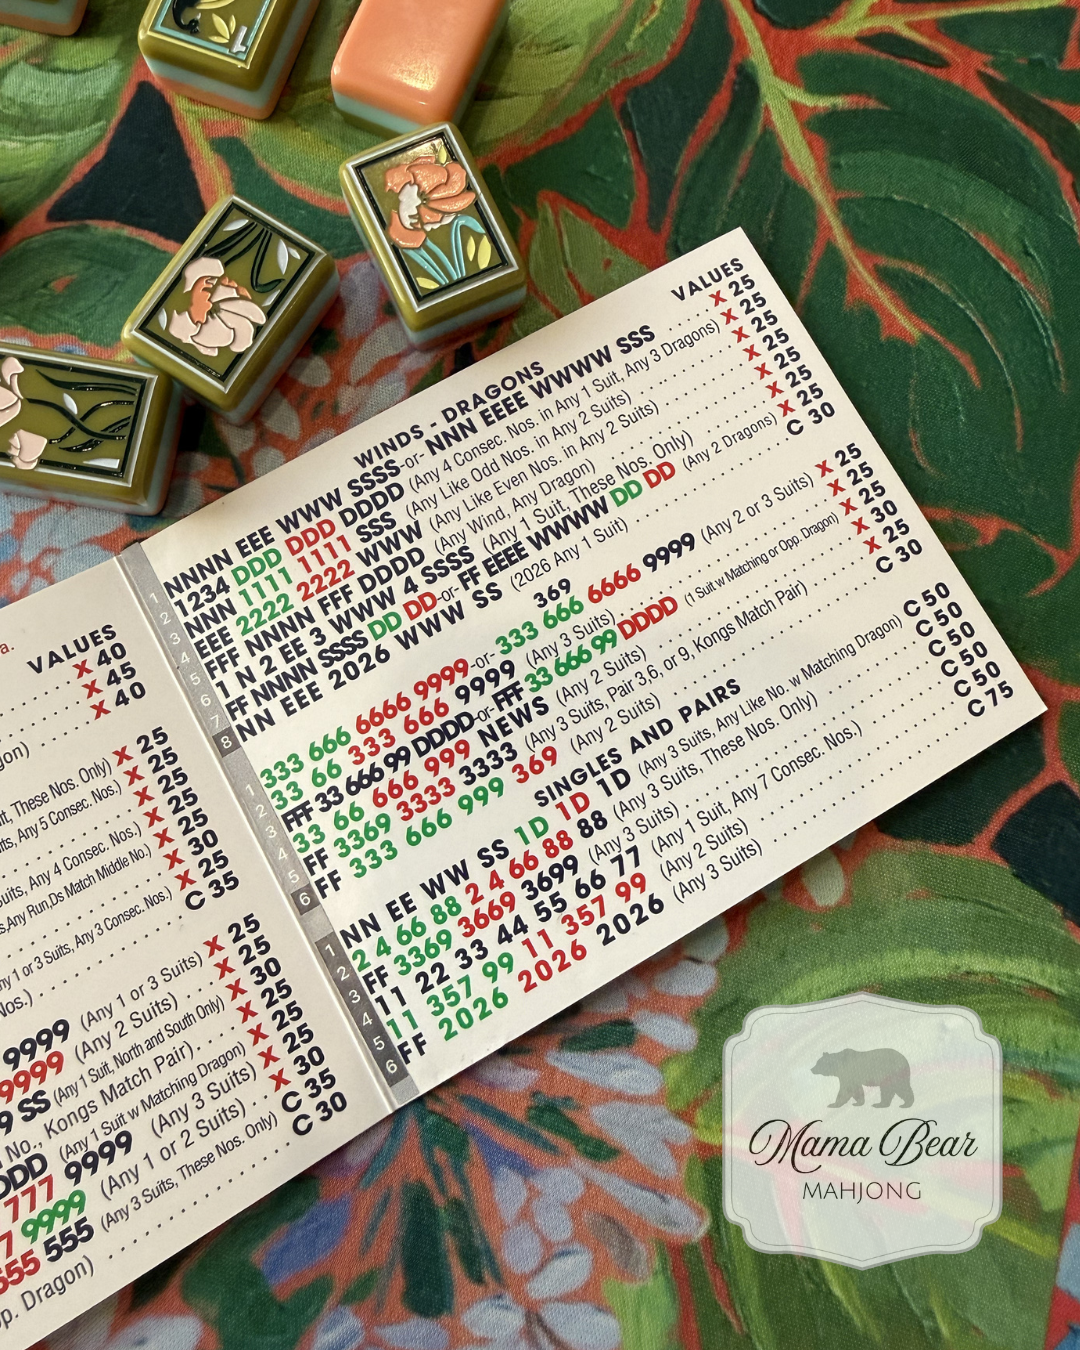 a.
VALUES
X 40
X 45
gon) X 40
it, These Nos. Only) X 25
its, Any 5 Consec. Nos.) X 25
X 25
uits, Any 4 Consec. Nos.) X 25
s, Any Run, Ds Match Middle No.) X 30
X 25
ny 1 or 3 Suits, Any 3 Consec. Nos.) C 35
Nos.)
9999 (Any 1 or 3 Suits) X 25
9999 (Any 2 Suits) X 25
9 SS (Any 1 Suit, North and South Only) X 30
No., Kongs Match Pair) X 25
DDD (Any 1 Suit w Matching Dragon) X 25
777 9999 (Any 3 Suits) X 30
7 9999 (Any 1 or 2 Suits) C 35
555 555 (Any 3 Suits, These Nos. Only) C 30
p. Dragon)
VALUES
WINDS - DRAGONS
1 NNNN EEE WWW SSSS -or- NNN EEEE WWWW SSS X 25
2 1234 DDD DDD DDDD (Any 4 Consec. Nos. in Any 1 Suit, Any 3 Dragons) X 25
3 NNN 1111 1111 SSS (Any Like Odd Nos. in Any 2 Suits) X 25
4 EEE 2222 2222 WWW (Any Like Even Nos. in Any 2 Suits) X 25
5 FFF NNNN FFF DDDD (Any Wind, Any Dragon) X 25
6 1 N 2 EE 3 WWW 4 SSSS (Any 1 Suit, These Nos. Only) X 25
7 FF NNNN SSSS DD DD -or- FF EEEE WWWW DD DD (Any 2 Dragons) X 25
8 NN EEE 2026 WWW SS (2026 Any 1 Suit) C 30
369
1 333 666 6666 9999 -or- 333 666 6666 9999 (Any 2 or 3 Suits) X 25
2 33 66 333 666 9999 (Any 3 Suits) X 25
3 FFF 33 666 99 DDDD -or- FFF 33 666 99 DDDD (1 Suit w Matching or Opp. Dragon) X 25
4 33 66 666 999 NEWS (Any 2 Suits) X 30
5 FF 3369 3333 3333 (Any 3 Suits, Pair 3,6, or 9, Kongs Match Pair) X 25
6 FF 333 666 999 369 (Any 2 Suits) C 30
SINGLES AND PAIRS
1 NN EE WW SS 1D 1D 1D (Any 3 Suits, Any Like No. w Matching Dragon) C 50
2 2 4 66 88 2 4 66 88 88 (Any 3 Suits, These Nos. Only) C 50
3 FF 3369 3669 3699 (Any 3 Suits) C 50
4 11 22 33 44 55 66 77 (Any 1 Suit, Any 7 Consec. Nos.) C 50
5 11 357 99 11 357 99 (Any 2 Suits) C 50
6 FF 2026 2026 2026 (Any 3 Suits) C 75
Mama Bear
MAHJONG